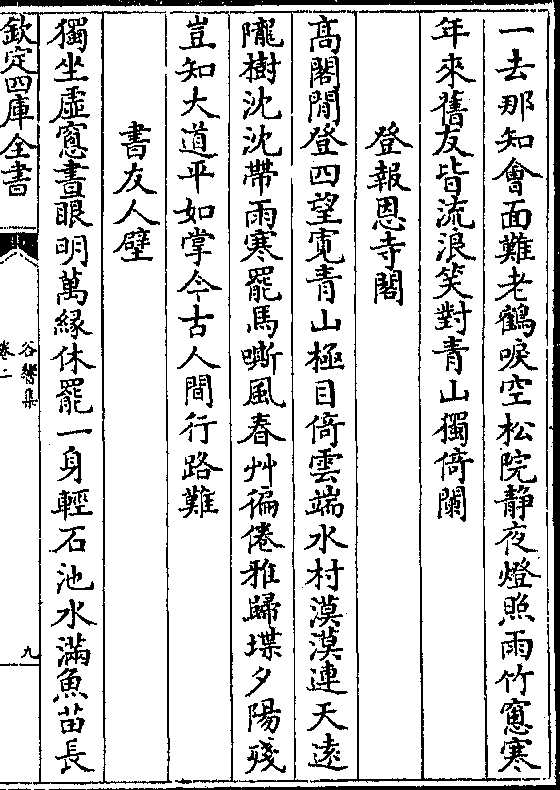 一去那知會面難老鶴唳空松院靜夜燈照雨竹窻寒
年來舊友皆流浪笑對青山獨倚闌
登報恩寺閣
髙閣閒登四望寛青山極目倚雲端水村漠漠連天逺
隴樹沈沈帶雨寒罷馬嘶風春艸徧倦雅歸堞夕陽殘
豈知大道平如掌今古人間行路難
書友人壁
獨坐虛窻晝眼明萬緣休罷一身輕石池水滿魚苗長
欽定四庫全書
谷響集
卷二
九